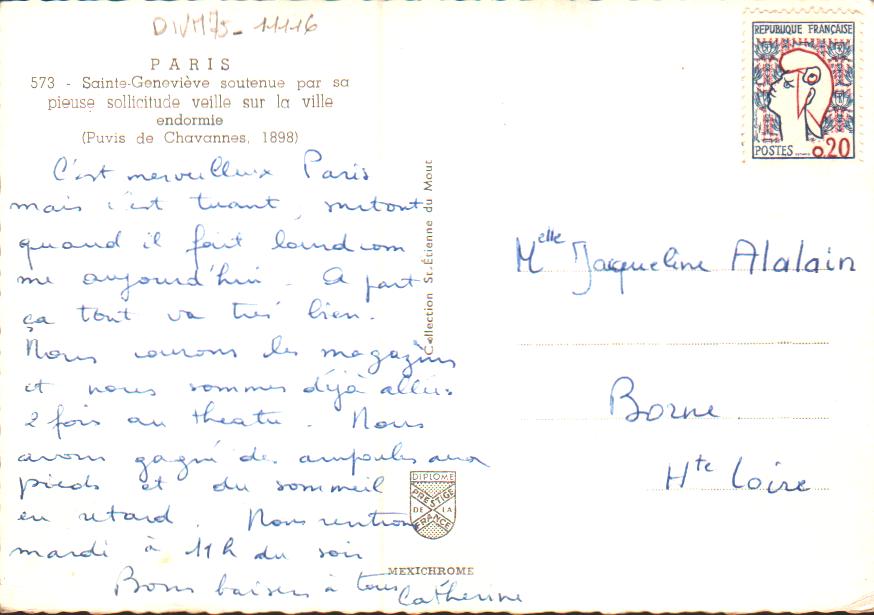 DIVM75-11116
PARIS
573 - Sainte-Geneviève soutenue par sa
pieuse sollicitude veille sur la ville
endormie
(Puvis de Chavannes, 1898)
C'est merveilleux Paris
mais c'est tuant, surtout
quand il fait lourd com
me aujourd'hui. A part
ça tout va très bien.
Nous courons les magazins
et nous sommes déjà allées
2 fois au theatre. Nous
avons gagné des ampoules aux
pieds et du sommeil
en retard. Nous rentrons
mardi à 11h du soir
Bons baisers à tous
Catherine
Collection St.-Étienne du Mont
DIPLOME
PRESTIGE
DE LA
FRANCE
MEXICHROME
REPUBLIQUE FRANÇAISE
POSTES 0,20
Melle Jacqueline Alalain
Borne
Hte Loire